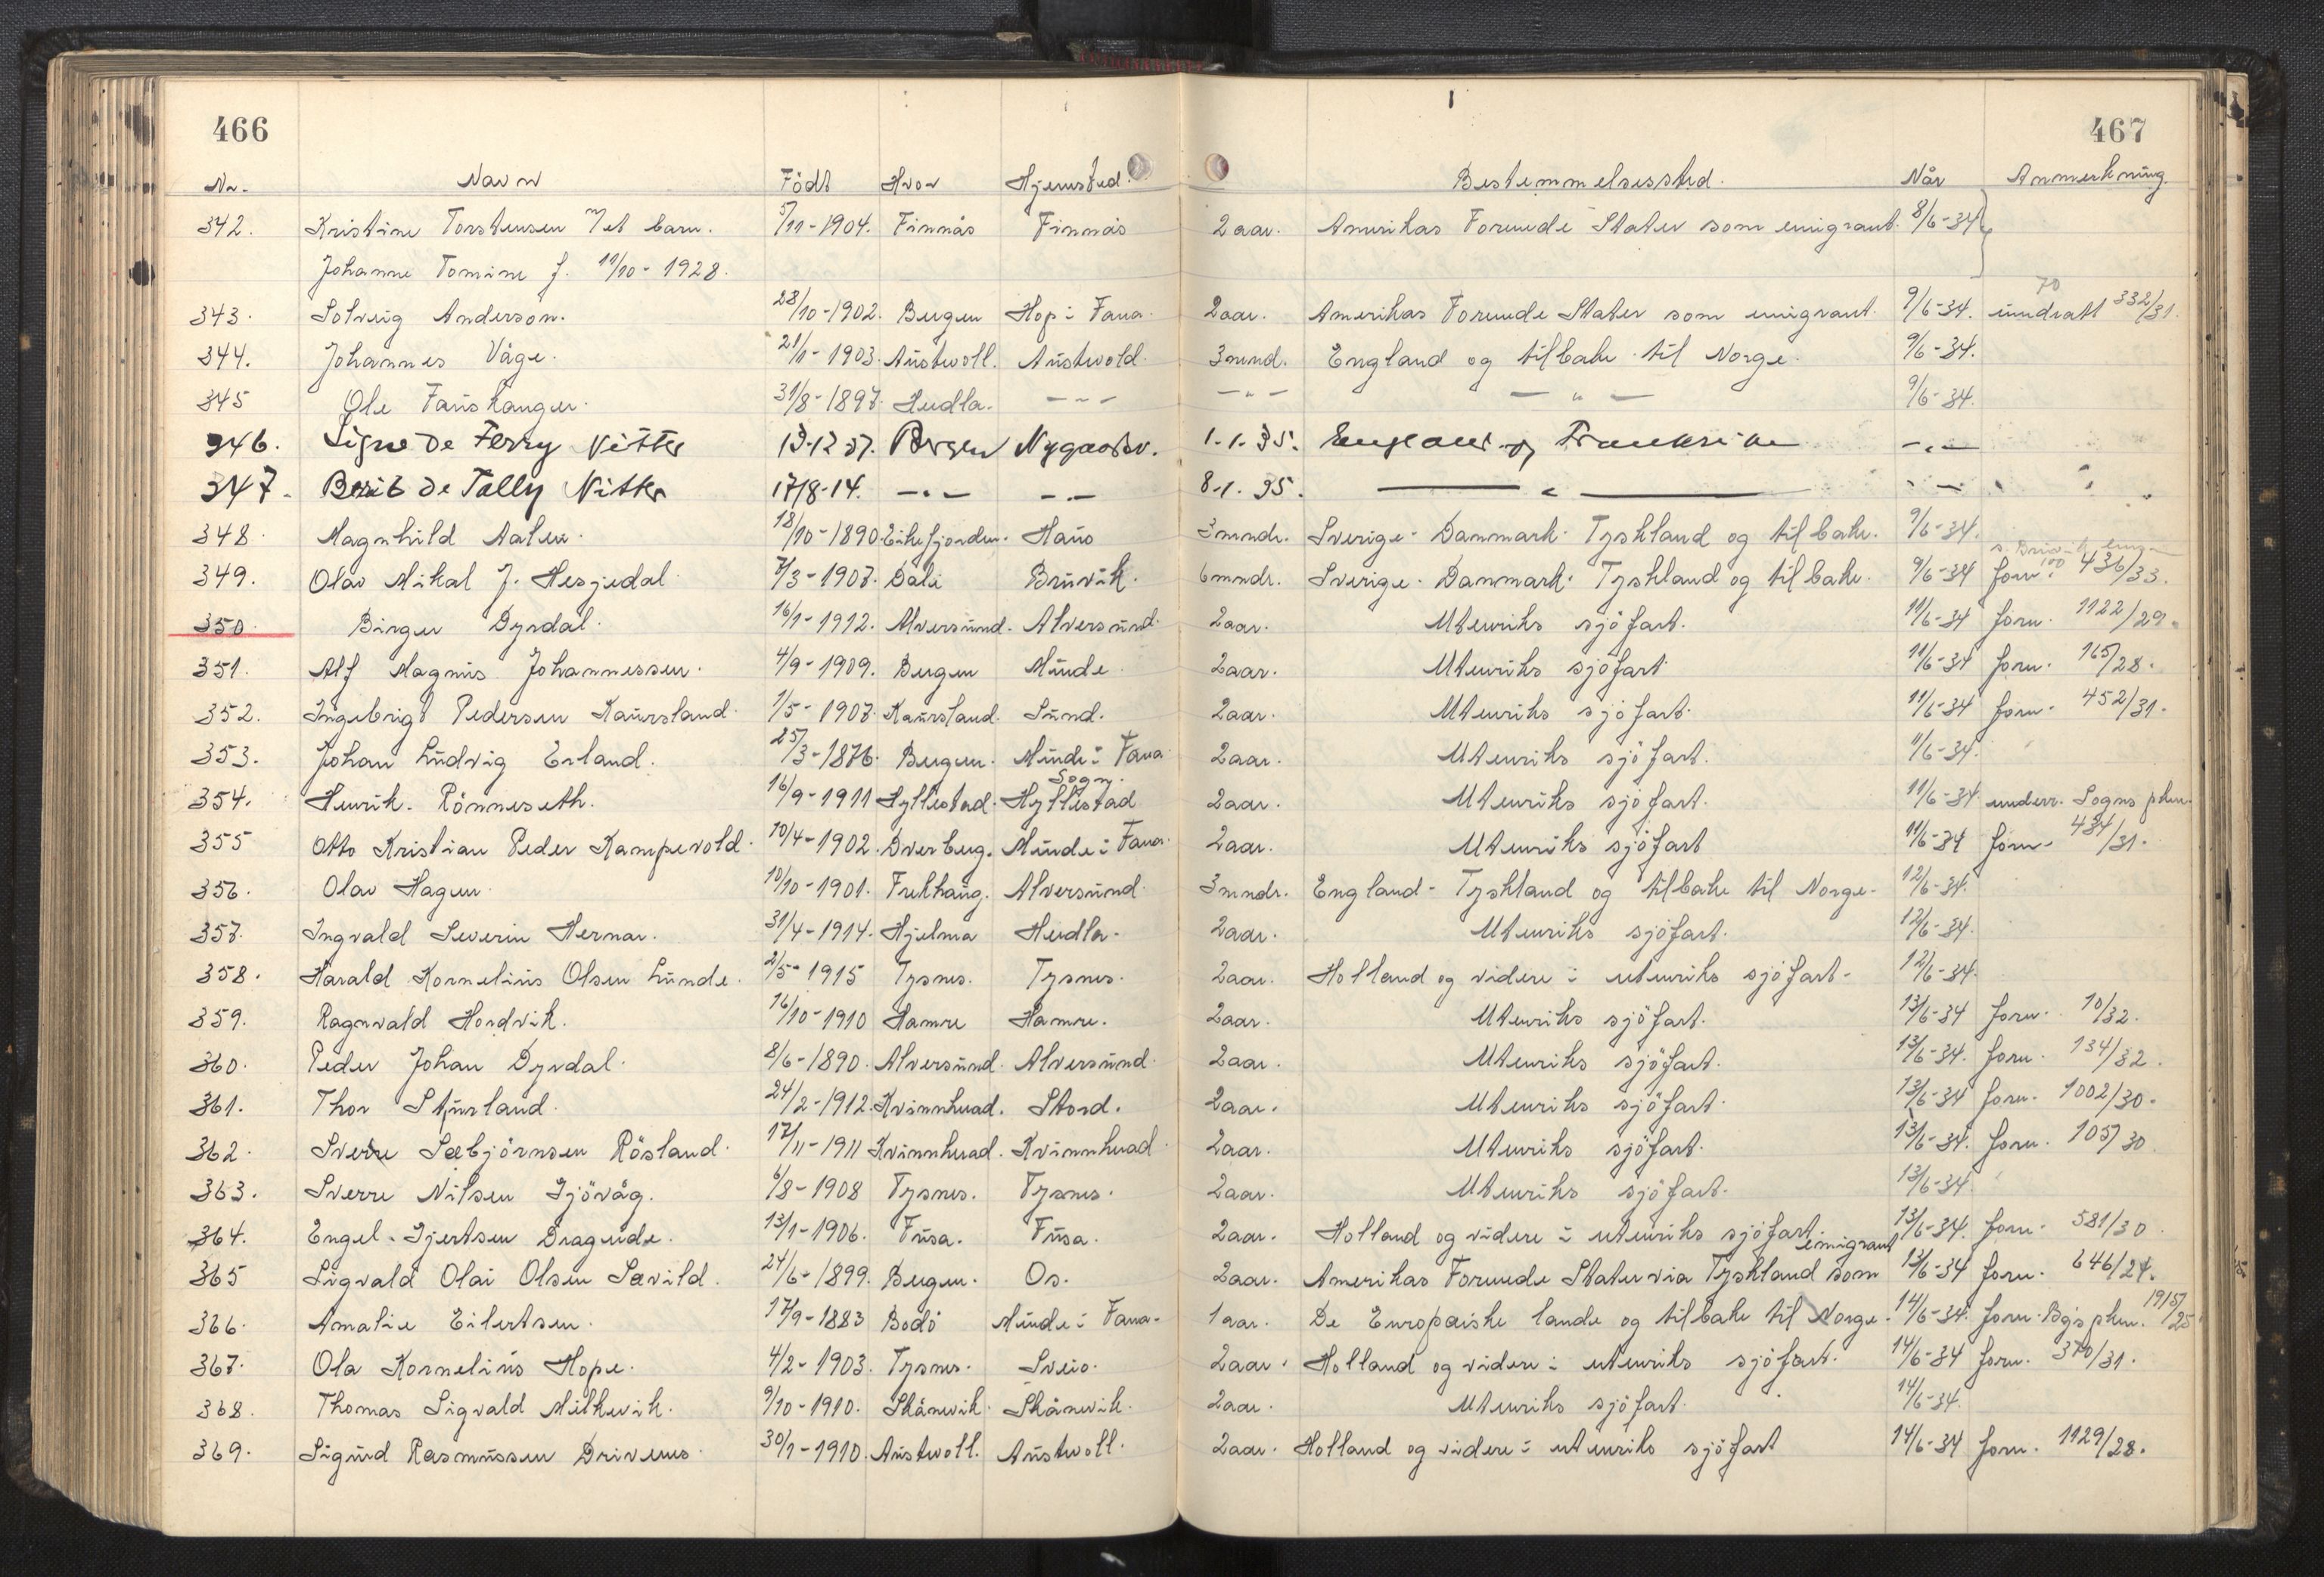 466
467
Nr. Navn Födt Hvor Hjemsted. Bestemmelsessted. Når Anmerkning.
342. Kristine Torstensen m/et barn. 5/11-1904. Finnås Finnås 2 aar. Amerikas Forenede Stater som emigrant. 8/6-34
Johanne Tomine f. 11/10-1928.
343. Solveig Anderson. 28/10-1902. Bergen Hop i Fana. 2 aar. Amerikas Forenede Stater som emigrant. 9/6-34. inndratt 70 332/31.
344. Johannes Våge. 21/1-1903. Austevoll. Austevold. 3 mnd. England og tilbake til Norge. 9/6-34.
345 Ole Fauskanger. 31/8-1897. Herdla. -"- -"- -"- 9/6-34.
346. Signe De Ferry Nitter Bergen 1-1-35. England og Frankrike -"-
347. Berit De Tally Nitter 17/8-14. -"- -"- 8-1-35. -"- -"-
348. Magnhild Aalen. 18/10-1890. Eikefjorden. Haus 3 mndr. Sverige - Danmark - Tyskland og tilbake. 9/6-34.
349. Olav Mikal J. Hesjedal 7/3-1907. Dale Bruvik. 6 mndr. Sverige - Danmark - Tyskland og tilbake. 9/6-34 forn. 436/33.
350. Birger Dyrdal. 16/1-1912. Alversund. Alversund. 2 aar. Utenriks sjöfart. 11/6-34 forn. 1122/29.
351. Alf Magnus Johannessen. 4/9-1909. Bergen Minde 2 aar. Utenriks sjöfart 11/6-34 forn. 165/28.
352. Ingebrigt Pedersen Kaursland. 1/5-1907. Kaursland. Sund. 2 aar. Utenriks sjöfart. 11/6-34 forn. 452/31.
353. Johan Ludvig Erland. 25/3-1876. Bergen. Minde i Fana. 2 aar. Utenriks sjöfart. 11/6-34.
354. Henrik Rönneseth. 16/9-1911 Hyllestad. Hyllestad Sogn. 2 aar. Utenriks sjöfart. 11/6-34 underr. Sogns phm.
355 Otto Kristian Peder Kampevold. 10/4-1902. Dverberg. Minde i Fana. 2 aar. Utenriks sjöfart 11/6-34 forn. 434/31.
356. Olav Hagen. 10/10-1901. Frekhaug. Alversund. 3 mndr. England - Tyskland og tilbake til Norge. 12/6-34.
357. Ingvald Severin Hernar. 31/4-1914. Hjelma Herdla. 2 aar. Utenriks sjöfart. 12/6-34.
358. Harald Kornelius Olsen Lunde. 2/5-1915 Tysnes. Tysnes. 2 aar. Holland og videre i utenriks sjöfart. 12/6-34.
359. Ragnvald Hordvik. 16/10-1910 Hamre Hamre. 2 aar. Utenriks sjöfart. 13/6-34 forn. 10/32.
360. Peder Johan Dyrdal. 8/6-1890. Alversund. Alversund. 2 aar. Utenriks sjöfart. 13/6-34. forn. 134/32.
361. Thor Sturland. 24/2-1912. Kvinnherad. Stord. 2 aar. Utenriks sjöfart. 13/6-34 forn. 1002/30.
362. Sverre Sæbjörnsen Rösland. 17/11-1911 Kvinnherad. Kvinnherad. 2 aar. Utenriks sjöfart. 13/6-34. forn. 105/30
363. Sverre Nilsen Gjövåg. 6/8-1908 Tysnes. Tysnes. 2 aar. Utenriks sjöfart. 13/6-34.
364. Engel Gjertsen Drageide. 13/1-1906. Fusa. Fusa. 2 aar. Holland og videre i utenriks sjöfart. 13/6-34. forn. 581/30
365 Sigvald Olai Olsen Sævild. 24/6-1899. Bergen. Os. 2 aar. Amerikas Forenede Stater via Tyskland som emigrant 13/6-34 forn. 646/24.
366. Amalie Eilertsen. 17/9-1883 Bodö Minde i Fana. 1 aar. De Europæiske lande og tilbake til Norge. 14/6-34. forn. Bgs phm. 1915/25
367. Ola Kornelius Hope. 4/2-1903. Tysnes. Sveio. 2 aar. Holland og videre i utenriks sjöfart. 14/6-34 forn. 370/31.
368. Thomas Sigvald Milkevik. 9/10-1910. Skånevik. Skånevik. 2 aar. Utenriks sjöfart. 14/6-34.
369. Sigurd Rasmussen Drivenes. 30/1-1910. Austevoll. Austevoll. 2 aar. Holland og videre i utenriks sjöfart 14/6-34 forn. 1129/28.